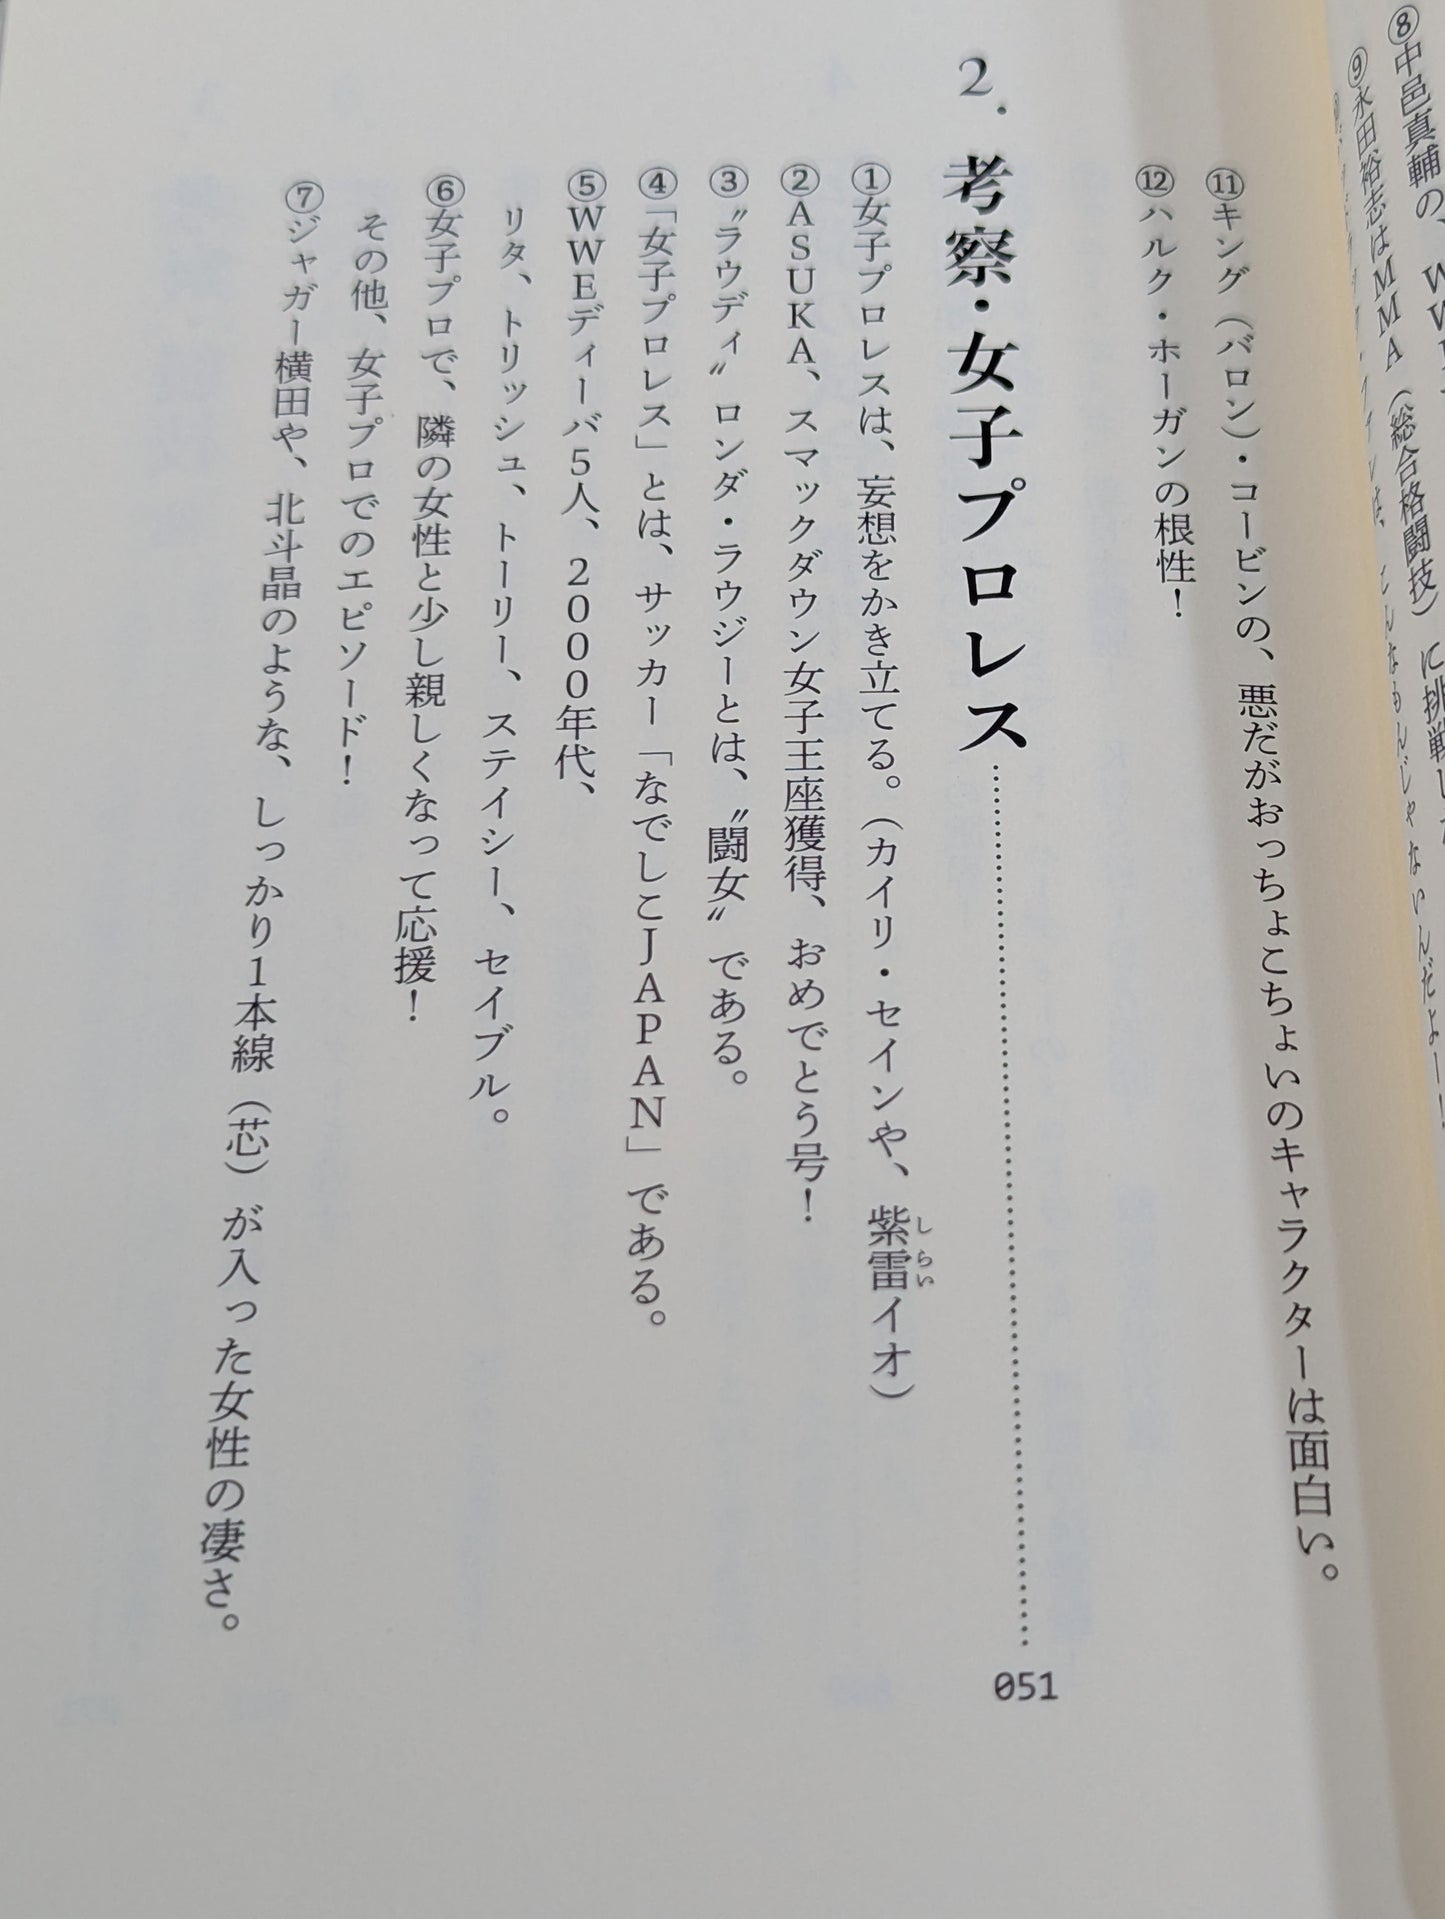 ⑧中邑真輔の、
⑨永田裕志はMMA（総合格闘技）に挑戦し
こんなもんじゃないんだよー！
⑪キング（バロン）・コービンの、悪だがおっちょこちょいのキャラクターは面白い。
⑫ハルク・ホーガンの根性！
2. 考察・女子プロレス……………………051
①女子プロレスは、妄想をかき立てる。（カイリ・セインや、紫雷イオ）
しらい
②ASUKA、スマックダウン女子王座獲得、おめでとう号！
③〝ラウディ〟ロンダ・ラウジーとは、〝闘女〟である。
④「女子プロレス」とは、サッカー「なでしこJAPAN」である。
⑤WWEディーバ5人、2000年代、
リタ、トリッシュ、トーリー、ステイシー、セイブル。
⑥女子プロで、隣の女性と少し親しくなって応援！
その他、女子プロでのエピソード！
⑦ジャガー横田や、北斗晶のような、しっかり1本線（芯）が入った女性の凄さ。